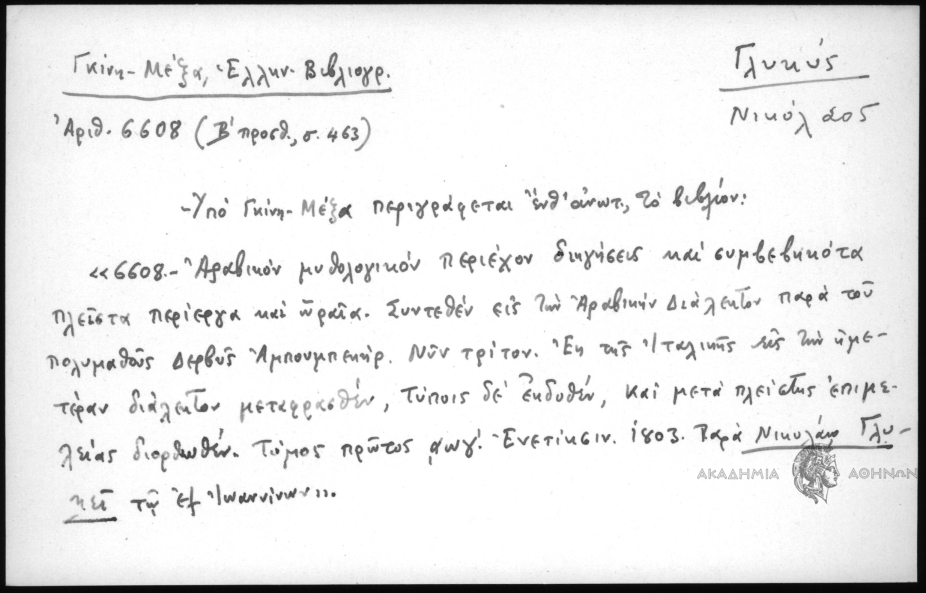 Γκίνη - Μέξα, Ἑλλην. Βιβλιογρ.
Γλυκύς
Νικόλαος
Ἀριθ. 6608 (Β' προσθ., σ. 463)
- Ὑπό Γκίνη - Μέξα περιγράφεται ἐνθ' ἀνωτ., τό βιβλίον:
«6608.- Ἀραβικόν μυθολογικόν περιέχον διηγήσεις καί συμβεβηκότα
πλεῖστα περίεργα καί ὡραῖα. Συντεθέν εἰς τήν Ἀραβικήν Διάλεκτον παρά τοῦ
πολυμαθοῦς Δερβύς Ἀμπουμπεκήρ. Νῦν τρίτον. Ἐκ τῆς Ἰταλικῆς εἰς τήν ἡμε-
τέραν διάλεκτον μεταφρασθέν, τύποις δέ ἐκδοθέν, καί μετά πλείστης ἐπιμε-
λείας διορθωθέν. Τόμος πρῶτος ͵αωγ'. Ἐνετίησιν. 1803. Παρά Νικολάῳ Γλυ-
κεῖ τῷ ἐξ Ἰωαννίνων».
ΑΚΑΔΗΜΙΑ ΑΘΗΝΩΝ